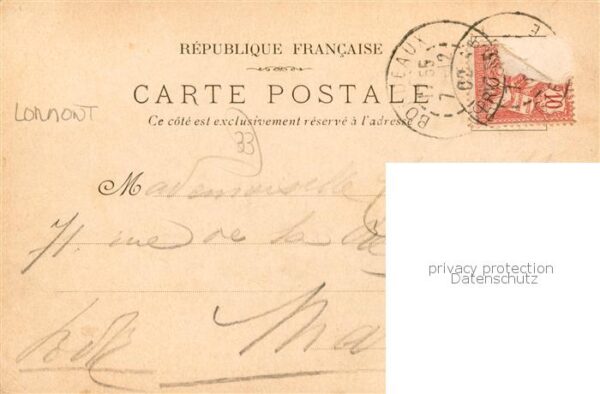 RÉPUBLIQUE FRANÇAISE
CARTE POSTALE
Ce côté est exclusivement réservé à l'adresse
LORMONT
33
BORDEAUX
10
Mademoiselle
71 rue de la
privacy protection
Datenschutz